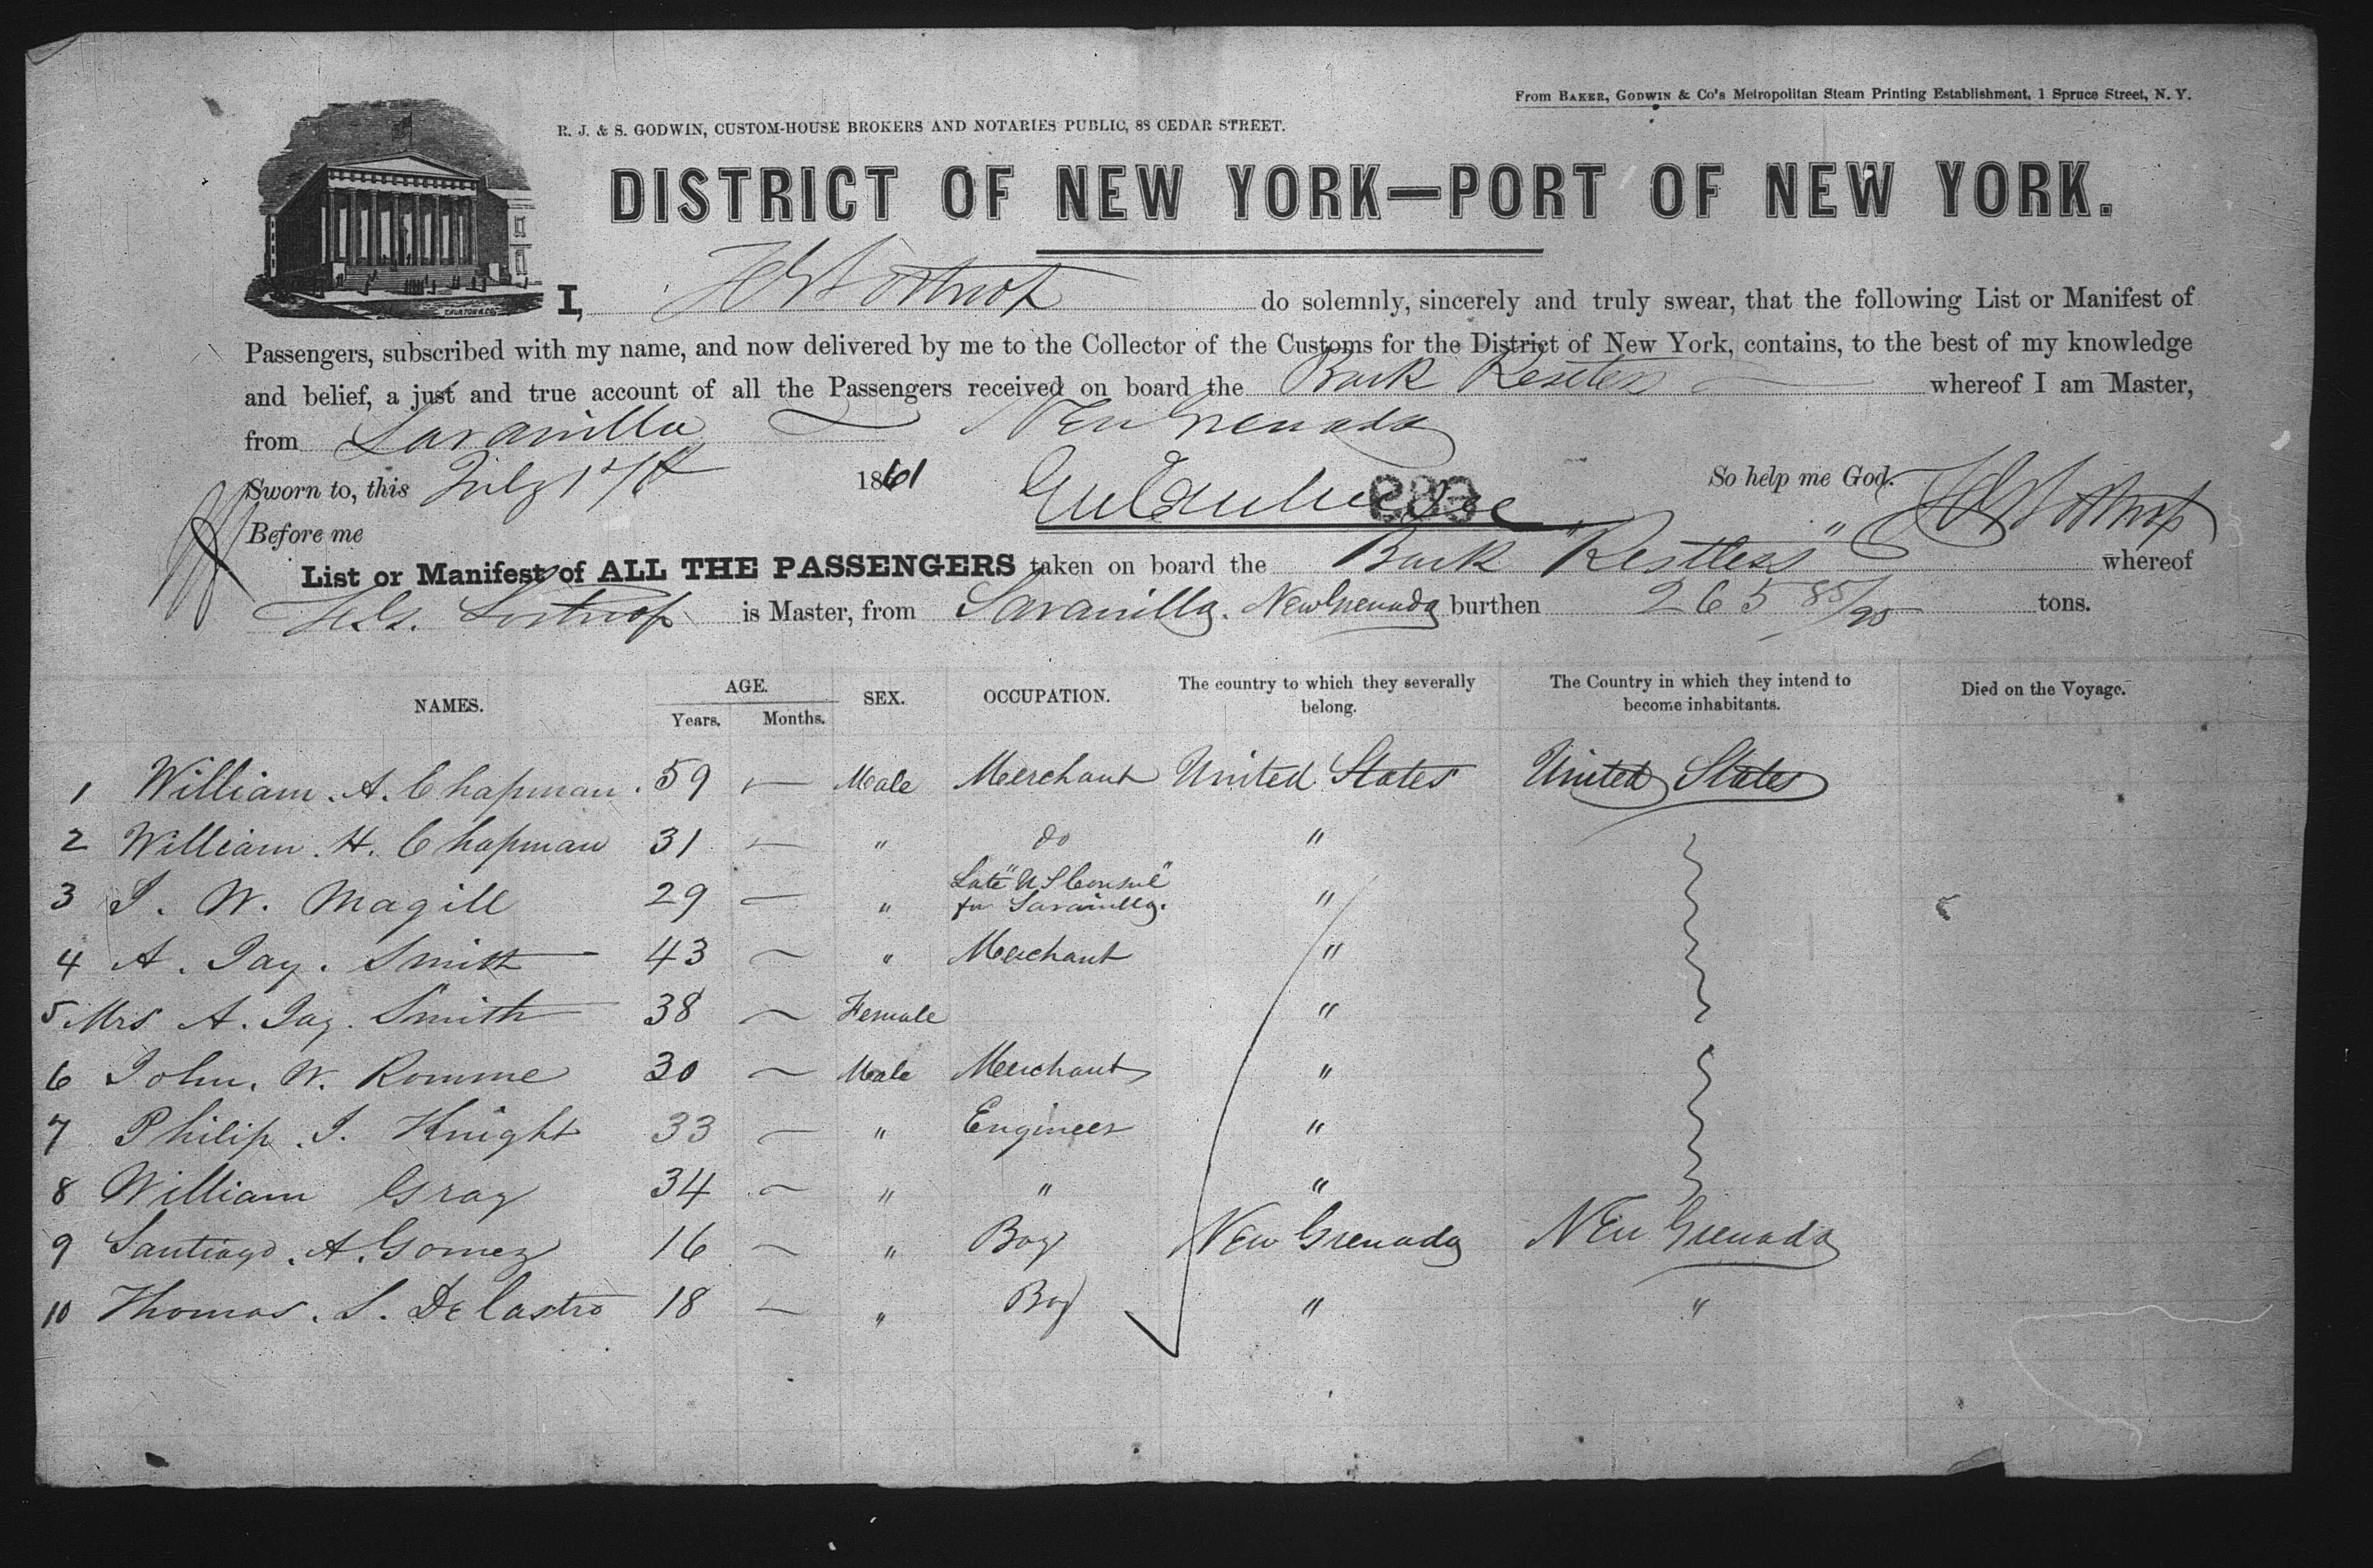 From BAKER, GODWIN & Co's Metropolitan Steam Printing Establishment, 1 Spruce Street, N. Y.
R. J. & S. GODWIN, CUSTOM-HOUSE BROKERS AND NOTARIES PUBLIC, 88 CEDAR STREET.
DISTRICT OF NEW YORK—PORT OF NEW YORK.
I, do solemnly, sincerely and truly swear, that the following List or Manifest of
Passengers, subscribed with my name, and now delivered by me to the Collector of the Customs for the District of New York, contains, to the best of my knowledge
and belief, a just and true account of all the Passengers received on board the Bark Restless whereof I am Master,
from Savanilla New Grenada
Sworn to, this July 17th 1861 So help me God.
Before me
683
List or Manifest of ALL THE PASSENGERS taken on board the Bark "Restless" whereof
is Master, from Savanilla. New Grenada burthen 265 85/95 tons.
NAMES. AGE. Years. Months. SEX. OCCUPATION. The country to which they severally belong. The Country in which they intend to become inhabitants. Died on the Voyage.
1 William. A. Chapman. 59 — Male Merchant United States United States
2 William. H. Chapman 31 — " do "
3 J. W. Magill 29 — " Late "U S Consul" for Savanilla. "
4 A. Jay. Smith 43 — " Merchant "
5 Mrs A. Jay. Smith 38 — Female "
6 John. W. Romme 30 — Male Merchant "
7 Philip. J. Knight 33 — " Engineer "
8 William Gray 34 — " " "
9 Santiago. A. Gomez 16 — " Boy New Grenada New Grenada
10 Thomas. S. De Castro 18 — " Boy " "